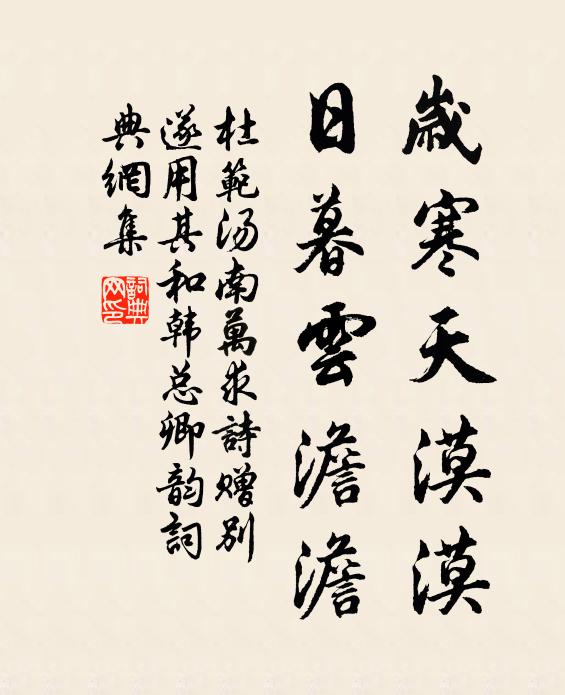 歲寒天漠漠
日暮雲澹澹
杜範汤南萬求詩赠別
遂用其和韩总卿韵詞
典網集
詞典网印